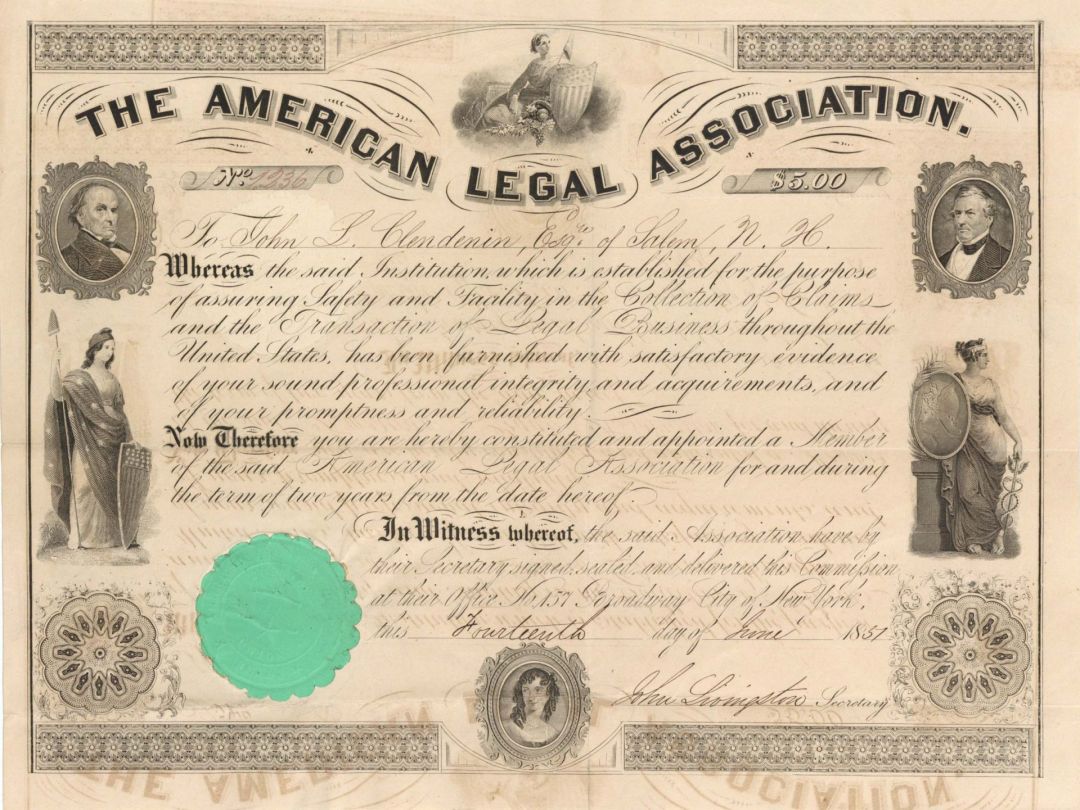 THE AMERICAN LEGAL ASSOCIATION.
No. 1236
$5.00
To John L. Clendenin, Esqre of Salem, N. H.
Whereas the said Institution, which is established for the purpose
of assuring Safety and Facility in the Collection of Claims
and the Transaction of Legal Business throughout the
United States, has been furnished with satisfactory evidence
of your sound professional integrity, and acquirements, and
of your promptness and reliability.
Now Therefore you are hereby constituted and appointed a Member
of the said American Legal Association for and during
the term of two years from the date hereof.
In Witness whereof, the said Association have by
their Secretary signed, sealed, and delivered this Commission
at their Office No. 157 Broadway City of New York,
this Fourteenth day of June 1851
John Livingston Secretary